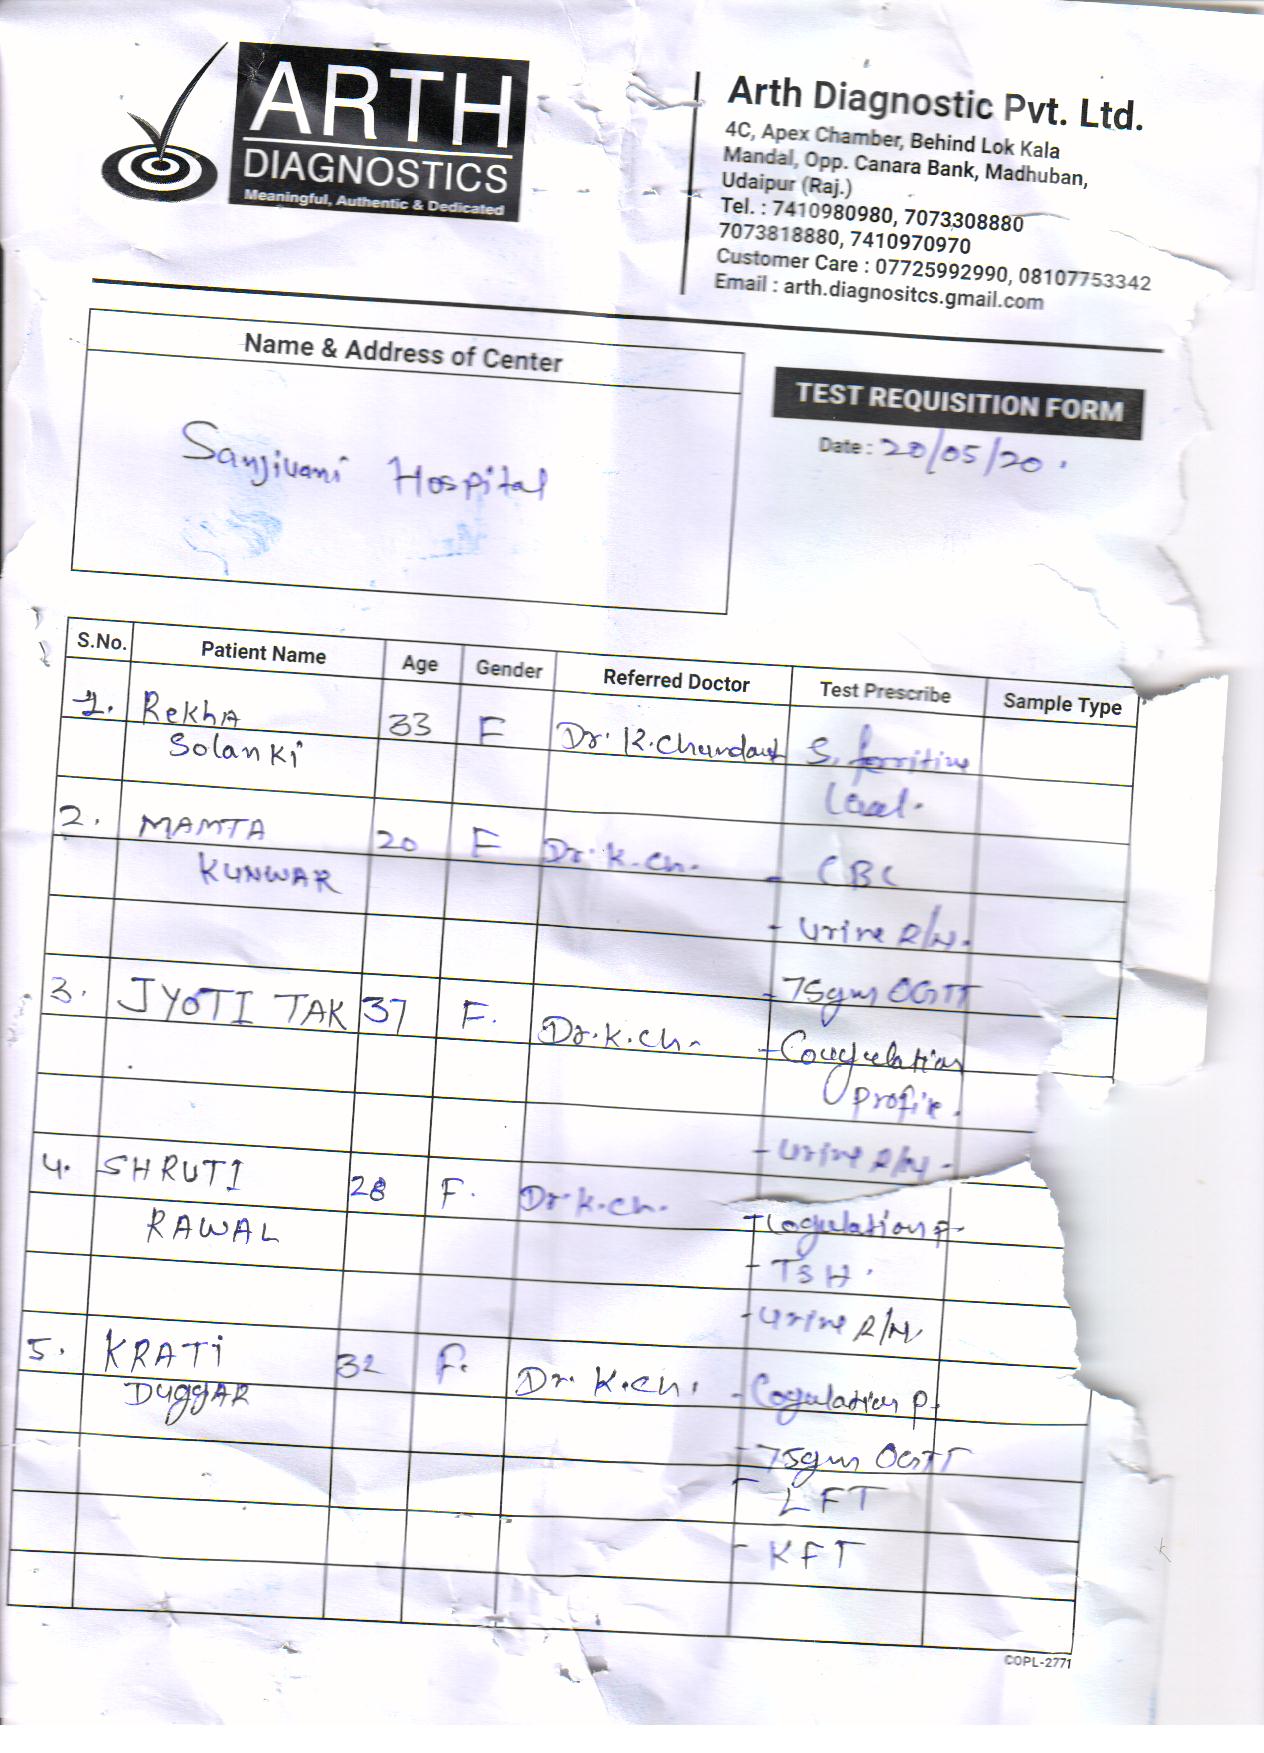 ARTH
DIAGNOSTICS
Meaningful, Authentic & Dedicated
Arth Diagnostic Pvt. Ltd.
4C, Apex Chamber, Behind Lok Kala
Mandal, Opp. Canara Bank, Madhuban,
Udaipur (Raj.)
Tel. : 7410980980, 7073308880
7073818880, 7410970970
Customer Care : 07725992990, 08107753342
Email : arth.diagnositcs.gmail.com
Name & Address of Center
TEST REQUISITION FORM
Date : 20/05/20.
Sanjivani Hospital
S.No. Patient Name Age Gender Referred Doctor Test Prescribe Sample Type
1. Rekha 33 F Dr. K. S. ferritine
Solanki
Level.
2. MAMTA 20 F Dr. K. Ch. - CBC
KUNWAR
- Urine R/M.
- 75gm OGTT
3. JYOTI TAK 37 F. Dr. K. Ch. - Cougulation
Profile.
- Urine R/M -
4. SHRUTI 28 F. Dr. K. Ch. - Cogulation P.
RAWAL
- TSH.
- Urine R/M.
5. KRATI 32 F. Dr. K. Ch. - Cogulation P.
DUGGAR
- 75gm OGTT
- LFT
- KFT
COPL-2771